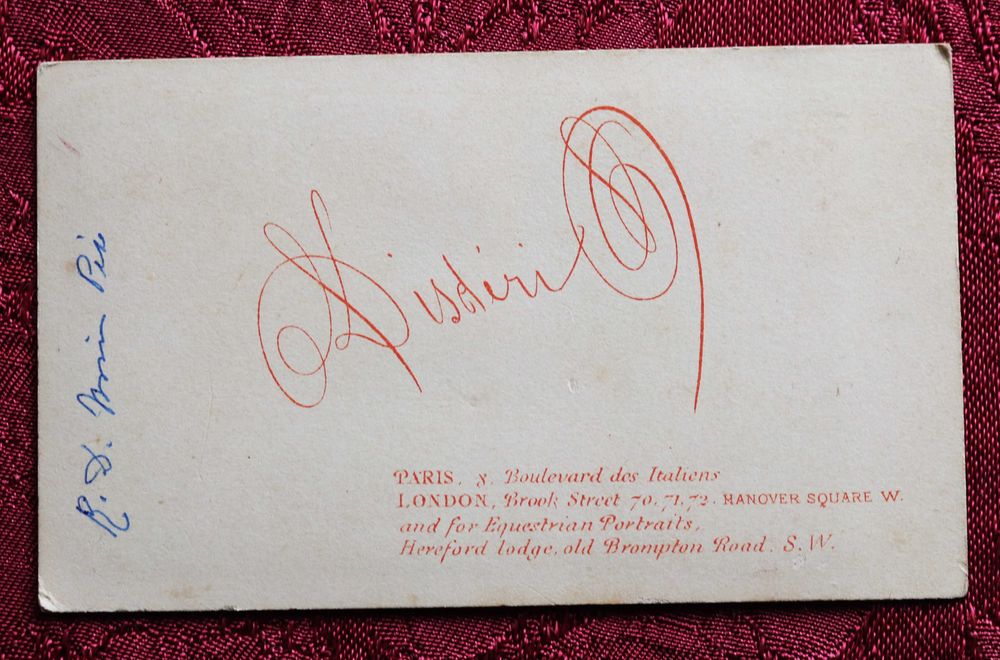 Disdéri
PARIS, 8, Boulevard des Italiens
LONDON, Brook Street 70. 71. 72. HANOVER SQUARE W.
and for Equestrian Portraits,
Hereford lodge, old Brompton Road. S. W.
R. D.